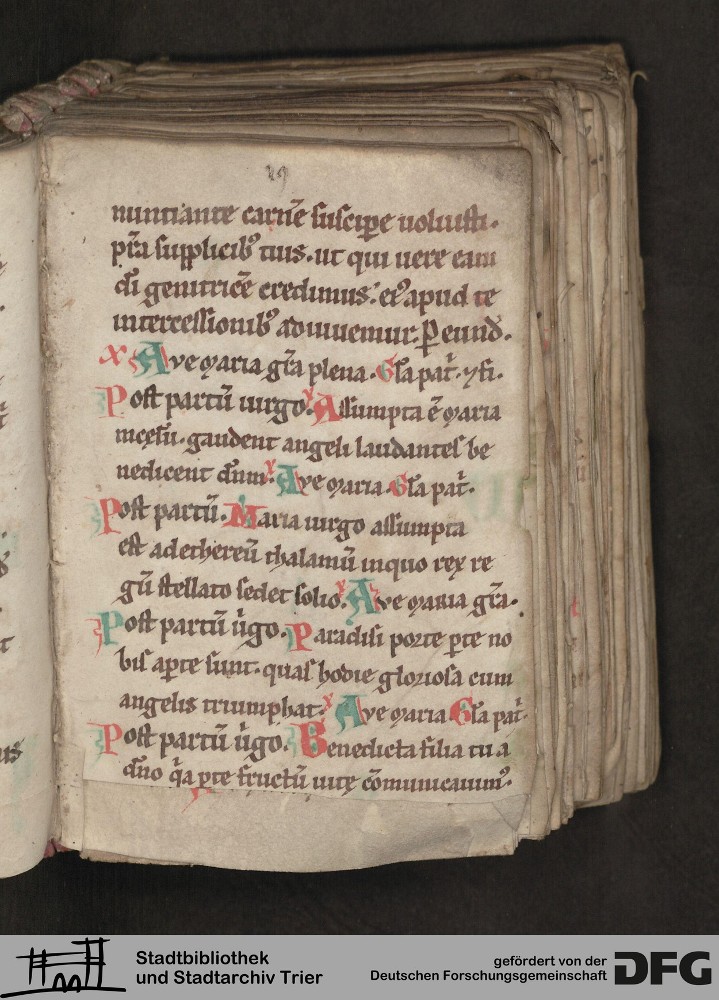 29
nuntiante carnē suscipe uoluisti.
p̄ra supplicib᷒ tuis. ut qui uere eam
dī genitricē credimus. ei᷒ apud te
intercessionib᷒ adiuuemur. P eund̄.
Aue maria gr̄a plena. Gl̄a pat̄. ⁊ fi.
Post partū uirgo. Assumpta ē maria
in cęlū. gaudent angeli laudantes be
nedicent dn̄m. Aue maria Gl̄a pat̄.
Post partū. Maria uirgo assumpta
est ad ethereū thalamū in quo rex re
gū stellato sedet solio. Aue maria gr̄a.
Post partū u̔go. Paradisi porte ꝑ te no
bis aꝑte sunt. quas hodie gloriosa cum
angelis triumphat. Aue maria Gl̄a pat̄.
Post partū u̔go. Benedicta filia tu a
dn̄o q̔a ꝑ te fructū uitę cōmunicauim᷒.
Stadtbibliothek
und Stadtarchiv Trier
gefördert von der
Deutschen Forschungsgemeinschaft
DFG